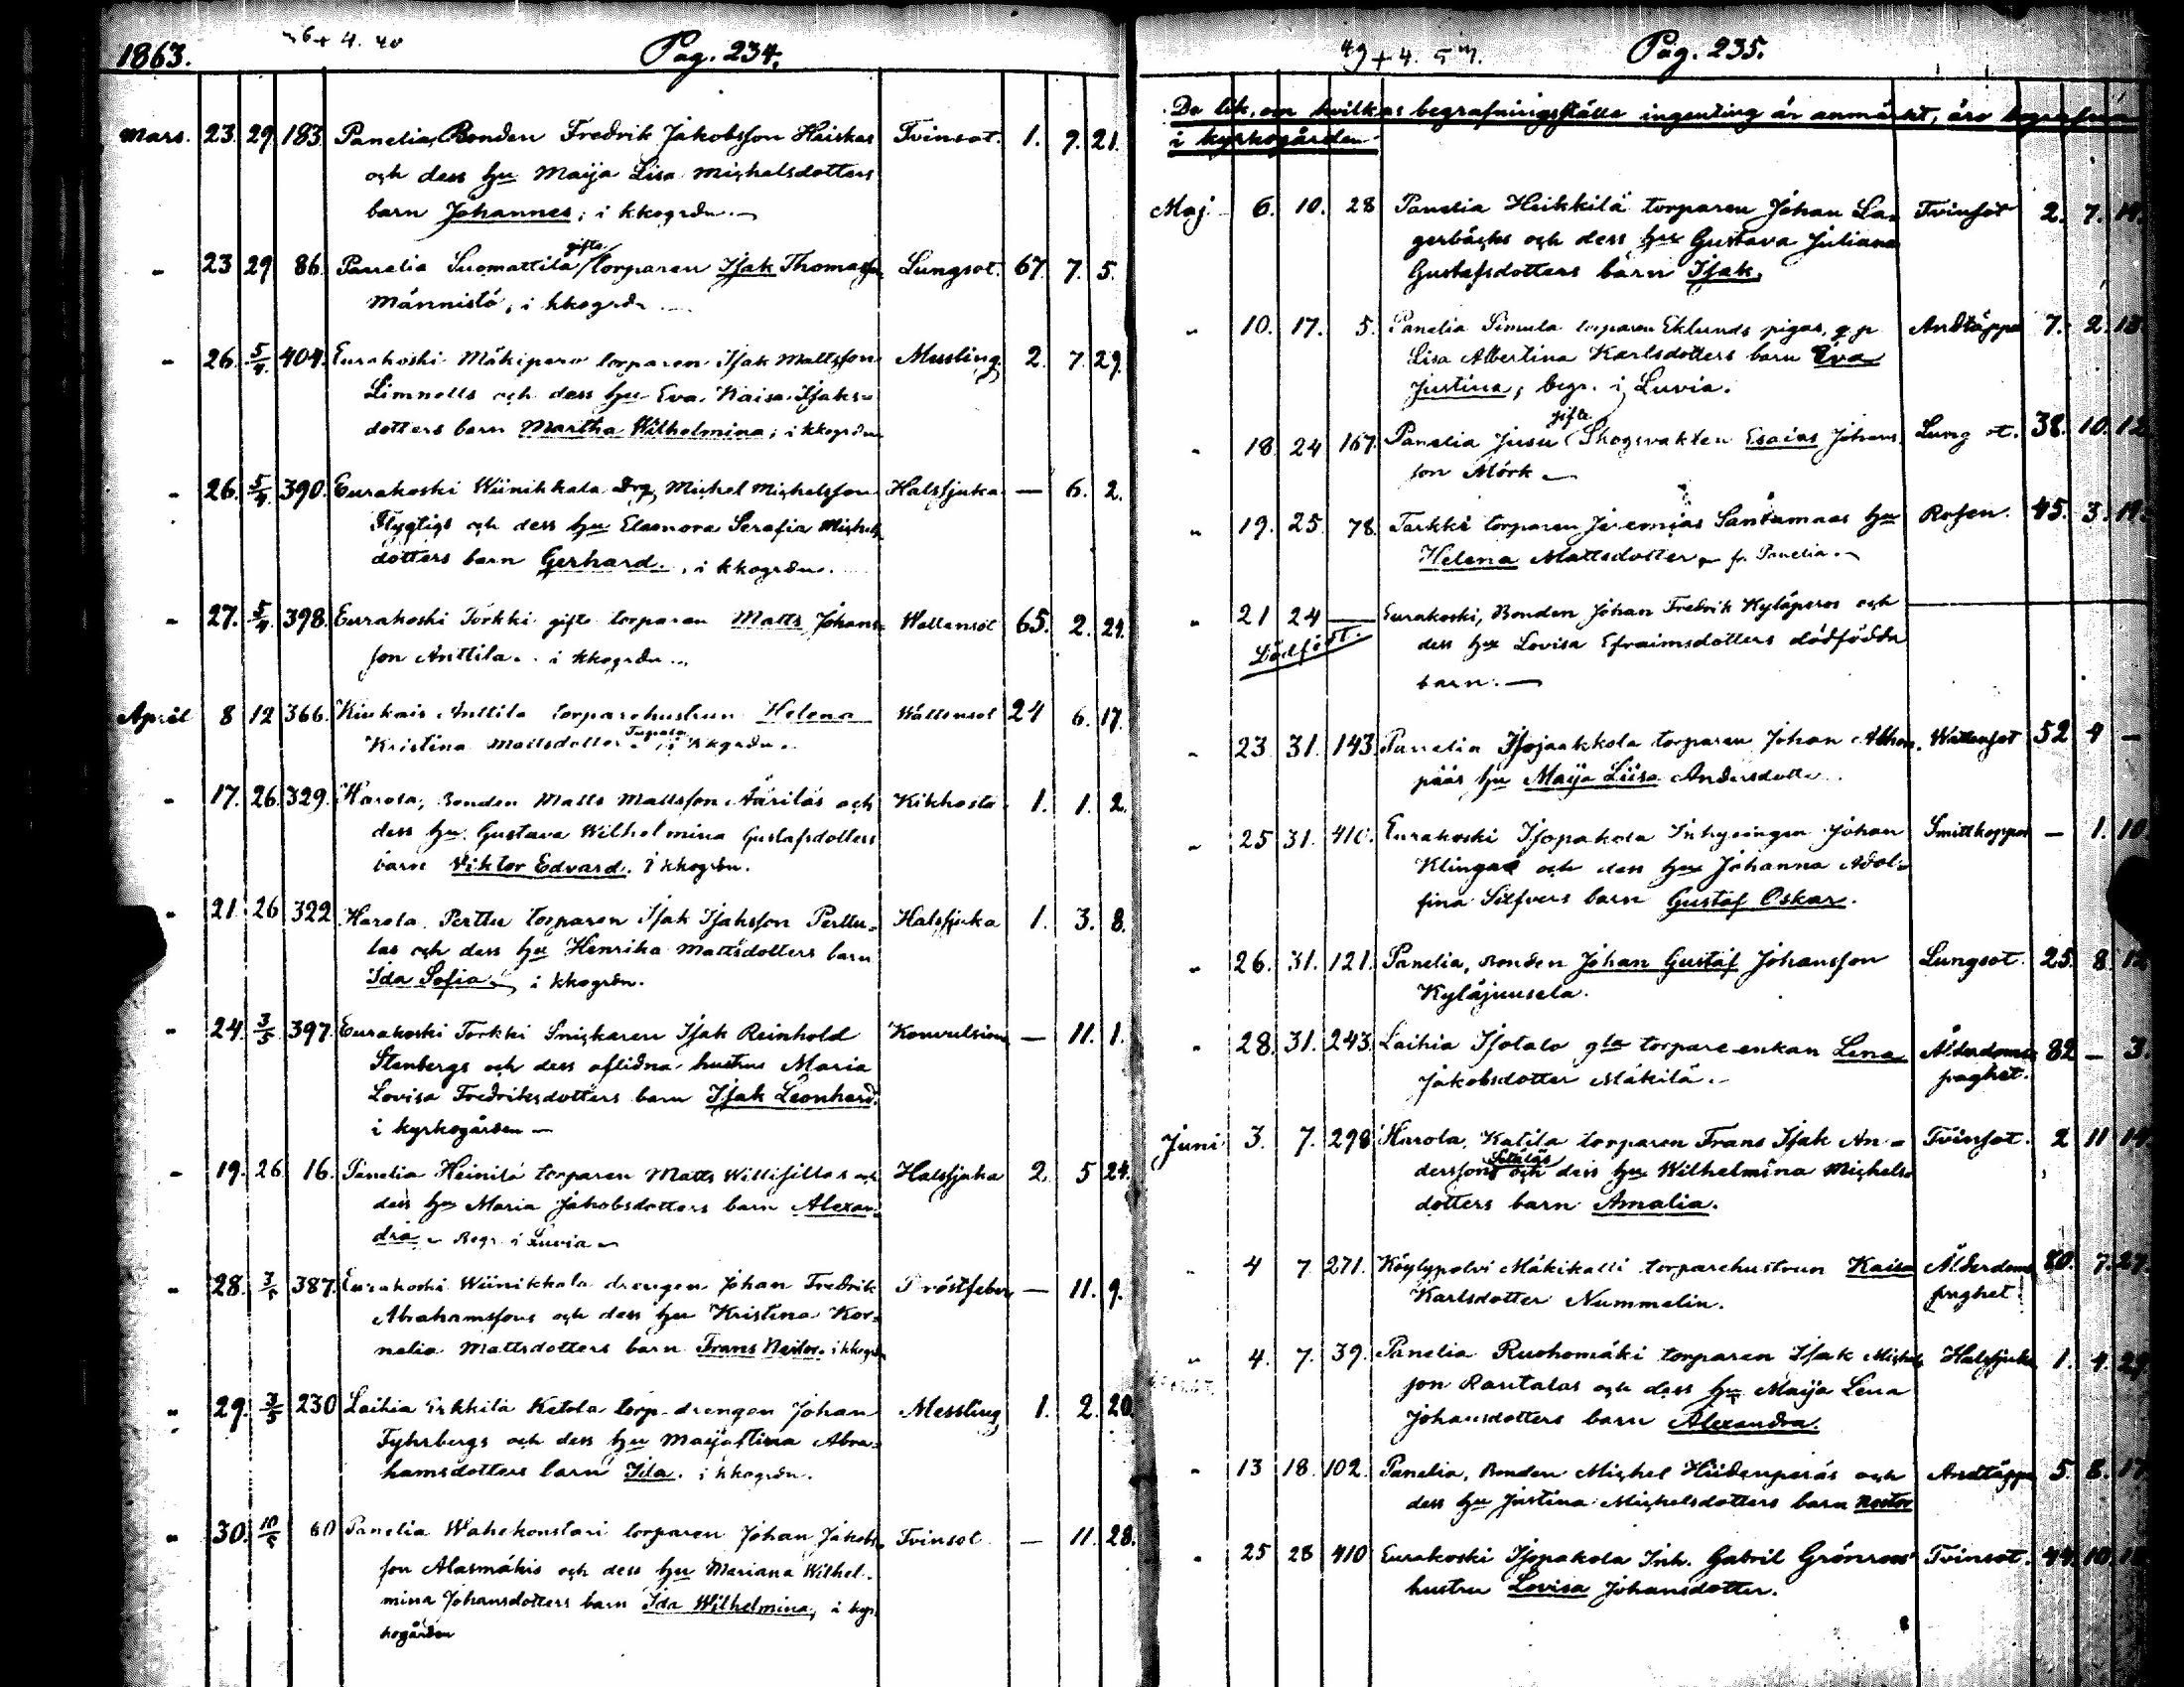 1863. Pag. 234.
Mars. 23 29 183 Panelia, Bonden Fredrik Jakobsson Heiskas Tvinsot. 1. 9. 21.
och dess hu Maija Lisa Michelsdotters
barn Johannes; i kkogrdn.
" 23 29 86. Panelia Suomattila gifte torparen Isak Thomasson Lungsot. 67. 7. 5.
Männistö, i kkogrdn
" 26. 5/4 404. Eurakoski Mäkipero torparen Isak Mattsson Messling 2. 7. 29.
Limnells och dess hu Eva Kaisa Isaks-
dotters barn Martha Wilhelmina; i kkogrdn
" 26. 5/4 390. Eurakoski Wiinikkala Drg. Michel Michelsson Halssjuka — 6. 2.
Flygtigs och dess hu Eleonora Serafia Michels
dotters barn Gerhard., i kkogrdn.
" 27. 5/4 398. Eurakoski Torkki gifte torparen Matts Johans- Wattensot 65. 2. 29.
son Anttila. i kkogrdn
April 8 12 366. Kiukais Anttila torparehustrun Helena Wattensot 24 6. 17.
Kristina Mattsdotter i kkgrdn.
" 17. 26 329. Harola, Bonden Matts Mattsson Ääriläs och Kikhosta 1. 1. 2.
dess hu Gustava Wilhelmina Gustafsdotters
barn Viktor Edvard. i kkogrdn.
" 21. 26 322 Harola Perttu torparen Isak Isaksson Perttu- Halssjuka 1. 3. 8.
las och dess hu Henrika Mattsdotters barn
Ida Sofia i kkogrdn.
" 24. 3/5 397. Eurakoski Torkki Snickaren Isak Reinhold Konvulsion — 11. 1.
Stenbergs och dess aflidna hustrus Maria
Lovisa Fredriksdotters barn Isak Leonhard.
i kyrkogården —
" 19. 26 16. Panelia Heinilä torparen Matts Willifillas och Halssjuka 2. 5 24.
dess hu Maria Jakobsdotters barn Alexan-
dra. Begr. i Luvia
" 28. 3/5 387. Eurakoski Wiinikkala drengen Johan Fredrik Bröstfeber — 11. 9.
Abrahamssons och dess hu Kristina Kor-
nelia Mattsdotters barn Frans Nestor. i kkogrdn
" 29. 3/5 230 Laihia Erkkilä Ketola torp-drengen Johan Messling 1. 2. 20.
Fyhrbergs och dess hu Maija Stina Abra-
hamsdotters barn Ida. i kkogrdn.
" 30. 10/5 60 Panelia Wahekonstari torparen Johan Jakobs- Tvinsot — 11. 28.
son Alasmäkis och dess hu Mariana Wilhel-
mina Johansdotters barn Ida Wilhelmina, i kyr-
kogården
Pag. 235.
De lik, om hvilkas begrafningsställe ingenting är anmärkt, äro begrafna
i kyrkogården
Maj 6. 10. 28 Panelia Heikkilä torparen Johan La- Tvinsot 2. 7.
gerbäcks och dess hu Gustava Juliana
Gustafsdotters barn Isak.
" 10. 17. 5. Panelia Simula torparen Eklunds pigas, q.p. Andtäppa 7. 2.
Lisa Albertina Karlsdotters barn Eva
Justina, begr. i Luvia.
" 18. 24 167. Panelia Jusu gifte Skogsvakten Esaias Johans Lungsot. 38. 10. 12
son Mörk
" 19. 25. 78. Tarkki torparen Jeremias Santamaas hu Rosen. 45. 3.
Helena Mattsdotter fr. Panelia.
" 21 24 — Eurakoski, Bonden Johan Fredrik Kyläperos och
Dödfödt. dess hu Lovisa Efraimsdotters dödfödda
barn. —
" 23. 31. 143. Panelia Isojaakkola torparen Johan Wattensot 52 4 —
pääs hu Maija Liisa Andersdotter
" 25 31. 410. Eurakoski Isopakola Inhysingen Johan Smittkoppor — 1. 10
Klingas och dess hu Johanna Adol-
fina Silfvers barn Gustaf Oskar.
" 26. 31. 121. Panelia, Bonden Johan Gustaf Johansson Lungsot. 25. 8. 12
Kyläjuusela.
" 28. 31. 243. Laihia Isotalo gla torpare-enkan Lena Ålderdoms 82 — 3.
Jakobsdotter Mäkilä. paghet.
Juni 3. 7. 298 Harola, Katila torparen Frans Isak An- Tvinsot. 2 11
derssons och dess hu Wilhelmina Michels-
dotters barn Amalia.
" 4 7. 271. Köylypolvi Mäkikalli torparehustrun Kaisa Ålderdoms 80. 7. 27
Karlsdotter Nummelin. paghet.
" 4. 7. 39. Panelia Ruohomäki torparen Isak Michels Halssjuka 1. 4. 29
son Rantalas och dess hu Maija Lena
Johansdotters barn Alexandra.
" 13 18. 102. Panelia, Bonden Michel Hiidenperäs och Andtäppa 5. 8. 17
dess hu Justina Michelsdotters barn Nestor
" 25 28 410 Eurakoski Isopakola Inh. Gabril Grönroos Tvinsot. 44. 10.
hustru Lovisa Johansdotter.